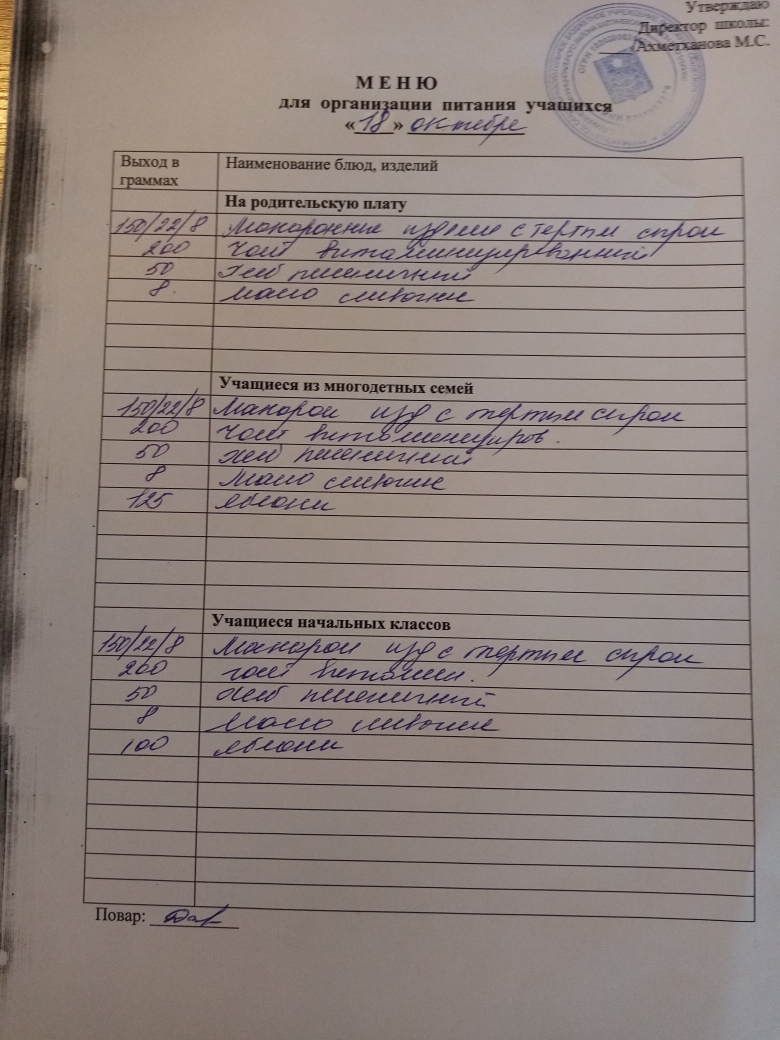 Утверждаю
Директор школы:
Ахметханова М.С.
МЕНЮ
для организации питания учащихся
«18» октября
Выход в граммах Наименование блюд, изделий
На родительскую плату
150/22/8 Макаронные изделия с тертым сыром
200 Чай витаминизированный
50 Хлеб пшеничный
8 Масло сливочное
Учащиеся из многодетных семей
150/22/8 Макарон изд с тертым сыром
200 Чай витаминизиров.
50 Хлеб пшеничный
8 Масло сливочн
125 яблоки
Учащиеся начальных классов
150/22/8 Макарон изд с тертым сыром
200 чай витамин.
50 Хлеб пшеничный
8 Масло сливочн
100 яблоки
Повар: